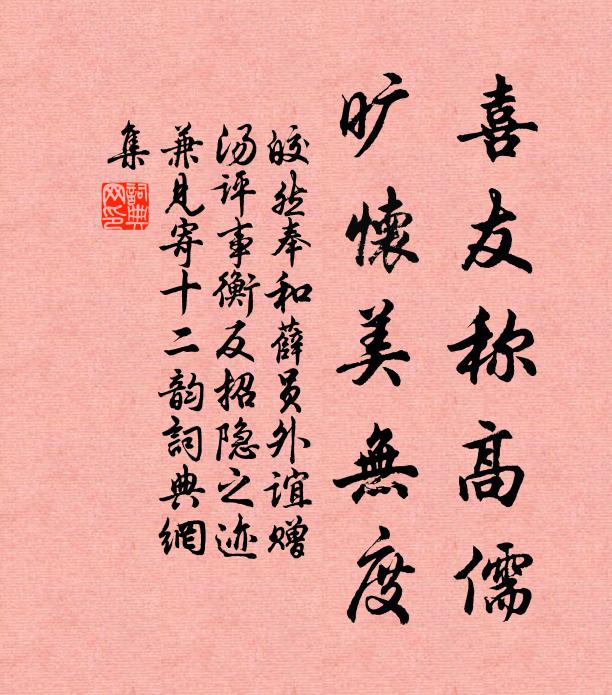 喜友称高儒
旷懷美無度
皎然奉和薛员外谊赠
汤评事衡反招隐之迹
兼见寄十二韵詞典網
集
詞典
网印